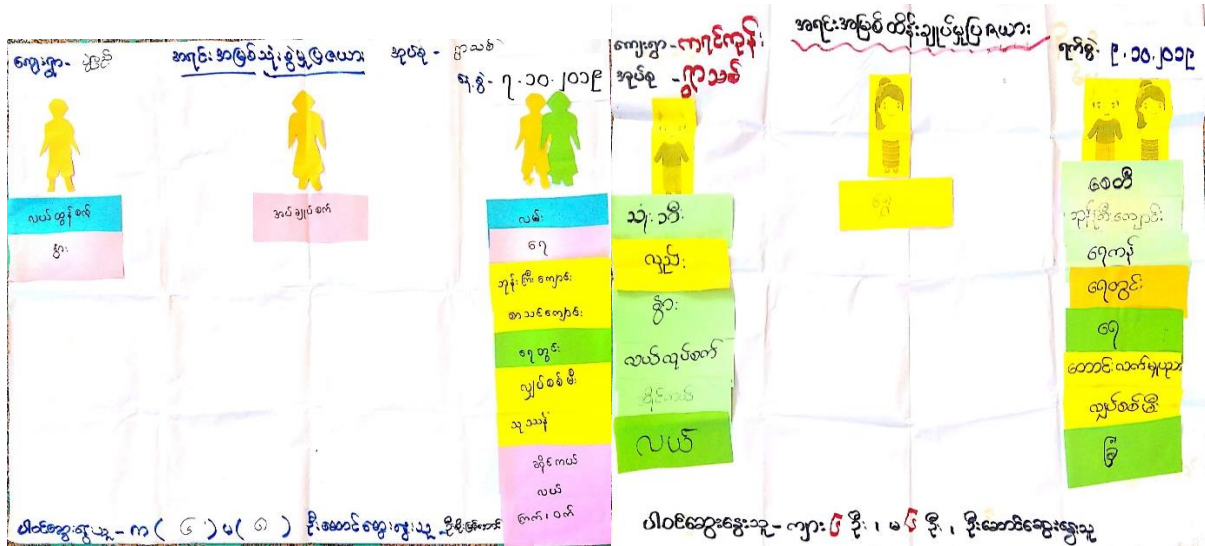 ကျေးရွာ-
အရင်းအမြစ်သုံးစွဲမှုပြဇယား
အုပ်စု - ရွာသစ်
ရ.စွဲ - ၇.၁၀.၂၀၁၉
လယ်ထွန်စက်
နွား
အပ်ချုပ်စက်
လမ်း
ရေ
ဘုန်းကြီးကျောင်း
စာသင်ကျောင်း
ရေတွင်း
လျှပ်စစ်မီး
သုဿန်
ဆိုင်ကယ်
လယ်
ကြက်၊ ဝက်
ပါဝင်ဆွေးနွေးသူ - က ( ၆ ) မ ( ၈ ) ဦးဆောင်ဆွေးနွေးသူ -
ကျေးရွာ - ကရင်ကုန်း
အရင်းအမြစ်ထိန်းချုပ်မှုပြဇယား
ရက်စွဲ - ၉.၁၀.၂၀၁၉
အုပ်စု - ရွာသစ်
သုံးဘီး
လှည်း
နွား
လယ်လုပ်စက်
ဆိုင်ကယ်
လယ်
ရွှေ
စေတီ
ဘုန်းကြီးကျောင်း
ရေကန်
ရေတွင်း
ရေ
တောင်းလက်မှုပညာ
လျှပ်စစ်မီး
ခြံ
ပါဝင်ဆွေးနွေးသူ - ကျား ၆ ဦး ၊ မ ၆ ဦး ၊ ဦးဆောင်ဆွေးနွေးသူ